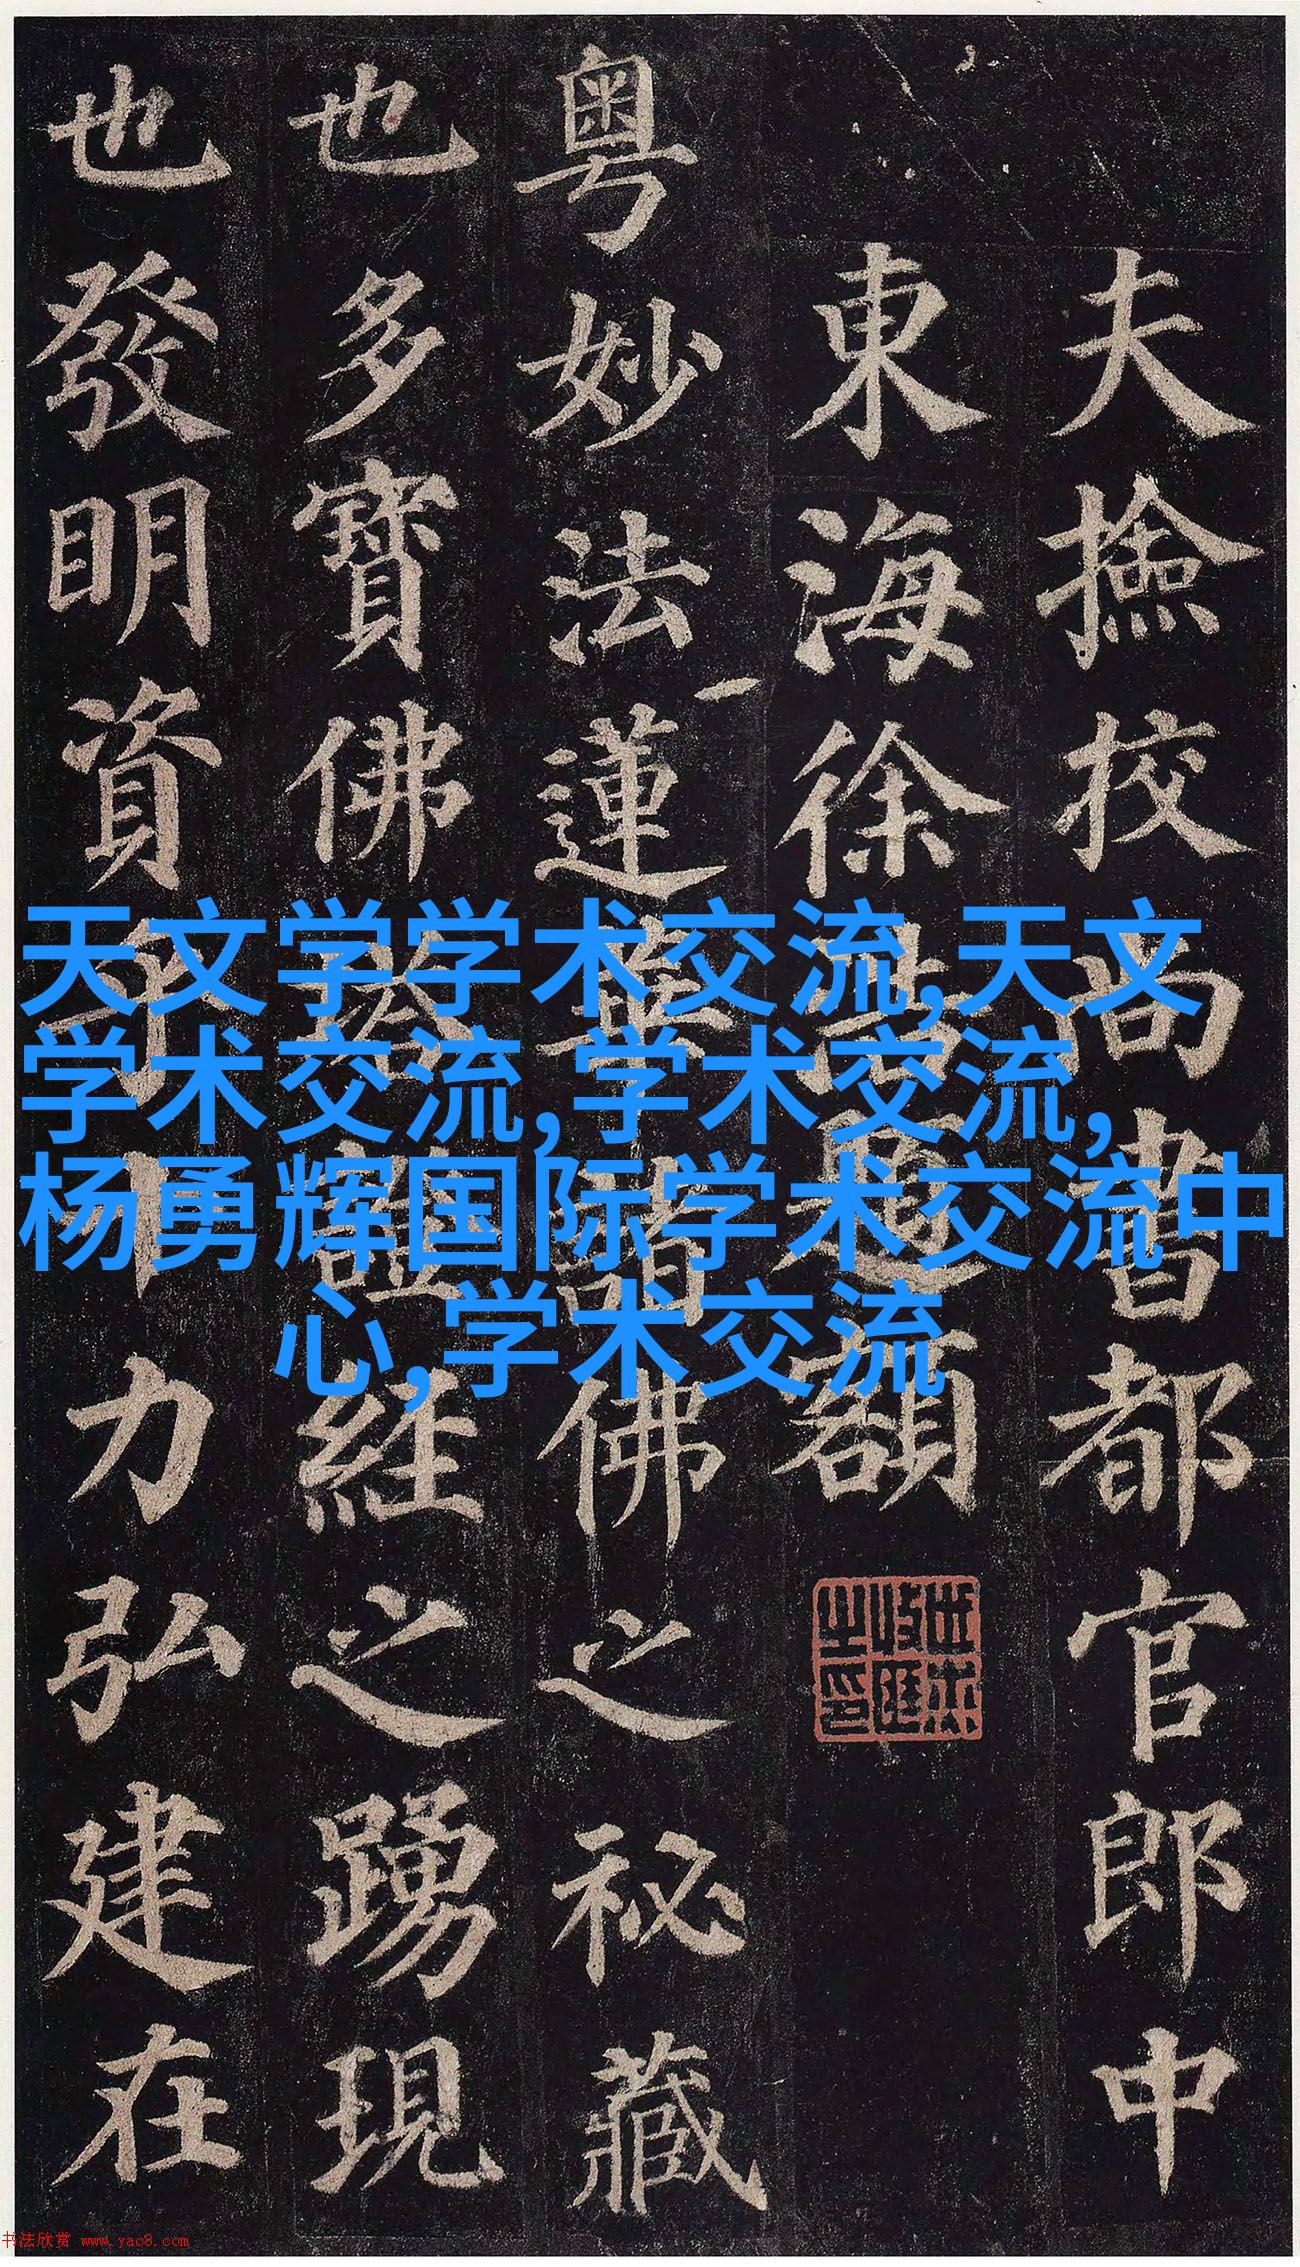 夫撿校尚書都官郎中
東海徐浩題額
粵妙法蓮華諸佛之祕藏
也多寶佛塔證經之踴現
也發明資乎十力弘建在
天文学学术交流,天文
学术交流,学术交流,
杨勇辉国际学术交流中
心,学术交流
书法欣赏 www.yac8.com